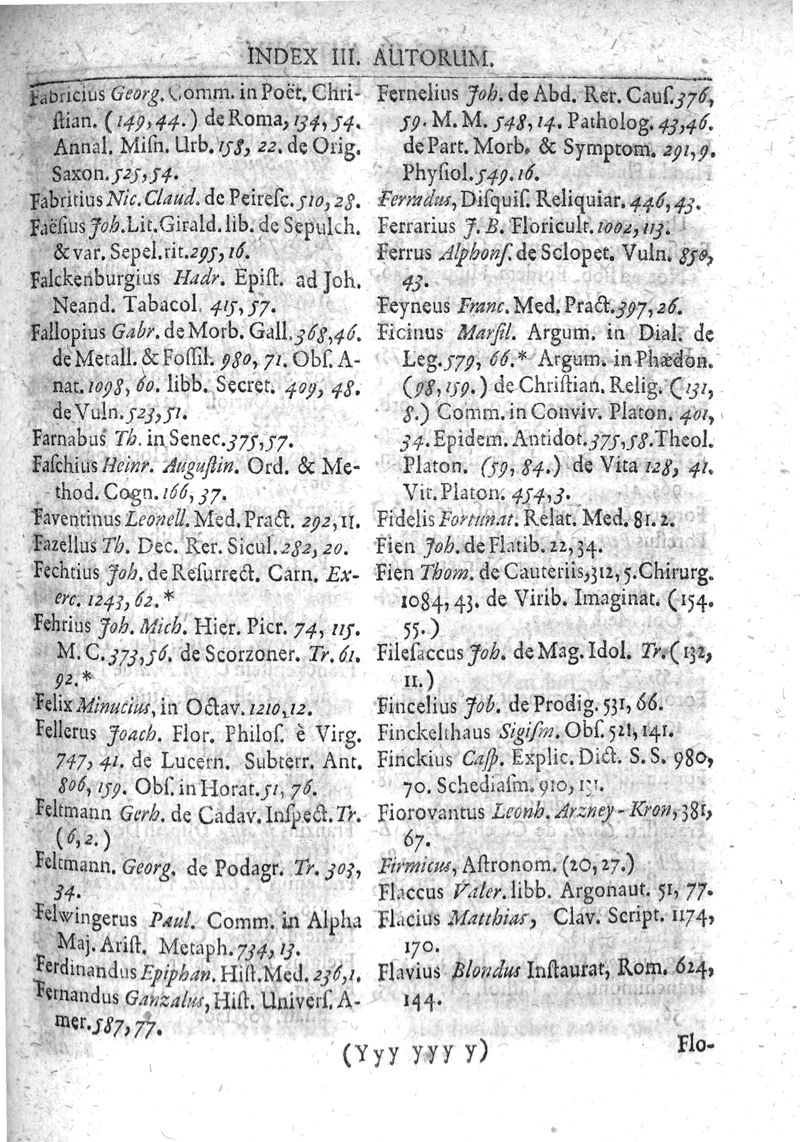 INDEX III. AUTORUM.
Fabricius Georg. Comm. in Poët. Chri-
ſtian. (149, 44.) de Roma, 134, 54.
Annal. Miſn. Urb. 158, 22. de Orig.
Saxon. 525, 54.
Fabritius Nic. Claud. de Peireſc. 510, 28.
Faëſius Joh. Lit. Girald. lib. de Sepulch.
& var. Sepel. rit. 295, 16.
Falckenburgius Hadr. Epiſt. ad Joh.
Neand. Tabacol. 415, 57.
Fallopius Gabr. de Morb. Gall. 368, 46.
de Metall. & Foſſil. 980, 71. Obſ. A-
nat. 1098, 60. libb. Secret. 409, 48.
de Vuln. 523, 51.
Farnabus Th. in Senec. 375, 57.
Faſchius Heinr. Auguſtin. Ord. & Me-
thod. Cogn. 166, 37.
Faventinus Leonell. Med. Pract. 292, 11.
Fazellus Th. Dec. Rer. Sicul. 282, 20.
Fechtius Joh. de Reſurrect. Carn. Ex-
erc. 1243, 62.*
Fehrius Joh. Mich. Hier. Picr. 74, 115.
M. C. 373, 56. de Scorzoner. Tr. 61.
92.*
Felix Minucius, in Octav. 1210, 12.
Fellerus Joach. Flor. Philoſ. è Virg.
747, 41. de Lucern. Subterr. Ant.
806, 159. Obſ. in Horat. 51, 76.
Feltmann Gerh. de Cadav. Inſpect. Tr.
(6, 2.)
Feltmann. Georg. de Podagr. Tr. 303,
34.
Felwingerus Paul. Comm. in Alpha
Maj. Ariſt. Metaph. 734, 13.
Ferdinandus Epiphan. Hiſt. Med. 236, 1.
Fernandus Ganzalus, Hiſt. Univerſ. A-
mer. 587, 77.
Fernelius Joh. de Abd. Rer. Cauſ. 376,
59. M. M. 548, 14. Patholog. 43, 46.
de Part. Morb. & Symptom. 291, 9.
Phyſiol. 549. 16.
Ferradus, Diſquiſ. Reliquiar. 446, 43.
Ferrarius J. B. Floricult. 1002, 113.
Ferrus Alphonſ. de Sclopet. Vuln. 850,
43.
Feyneus Franc. Med. Pract. 397, 26.
Ficinus Marſil. Argum. in Dial. de
Leg. 579, 66.* Argum. in Phædon.
(98, 159.) de Chriſtian. Relig. (131,
8.) Comm. in Conviv. Platon. 401,
34. Epidem. Antidot. 375, 58. Theol.
Platon. (59, 84.) de Vita 128, 41.
Vit. Platon. 454, 3.
Fidelis Fortunat. Relat. Med. 81. 2.
Fien Joh. de Flatib. 22, 34.
Fien Thom. de Cauteriis, 312, 5. Chirurg.
1084, 43. de Virib. Imaginat. (154.
55.)
Fileſaccus Joh. de Mag. Idol. Tr. (132,
11.)
Fincelius Job. de Prodig. 531, 66.
Finckelthaus Sigiſm. Obſ. 521, 141.
Finckius Caſp. Explic. Dict. S. S. 980,
70. Schediaſm. 910, 131.
Fiorovantus Leonh. Arzney-Kron, 381,
67.
Firmicus, Aſtronom. (20, 27.)
Flaccus Valer. libb. Argonaut. 51, 77.
Flacius Matthias, Clav. Script. 1174,
170.
Flavius Blondus Inſtaurat, Rom. 624,
144.
(Yyy yyy y)
Flo-